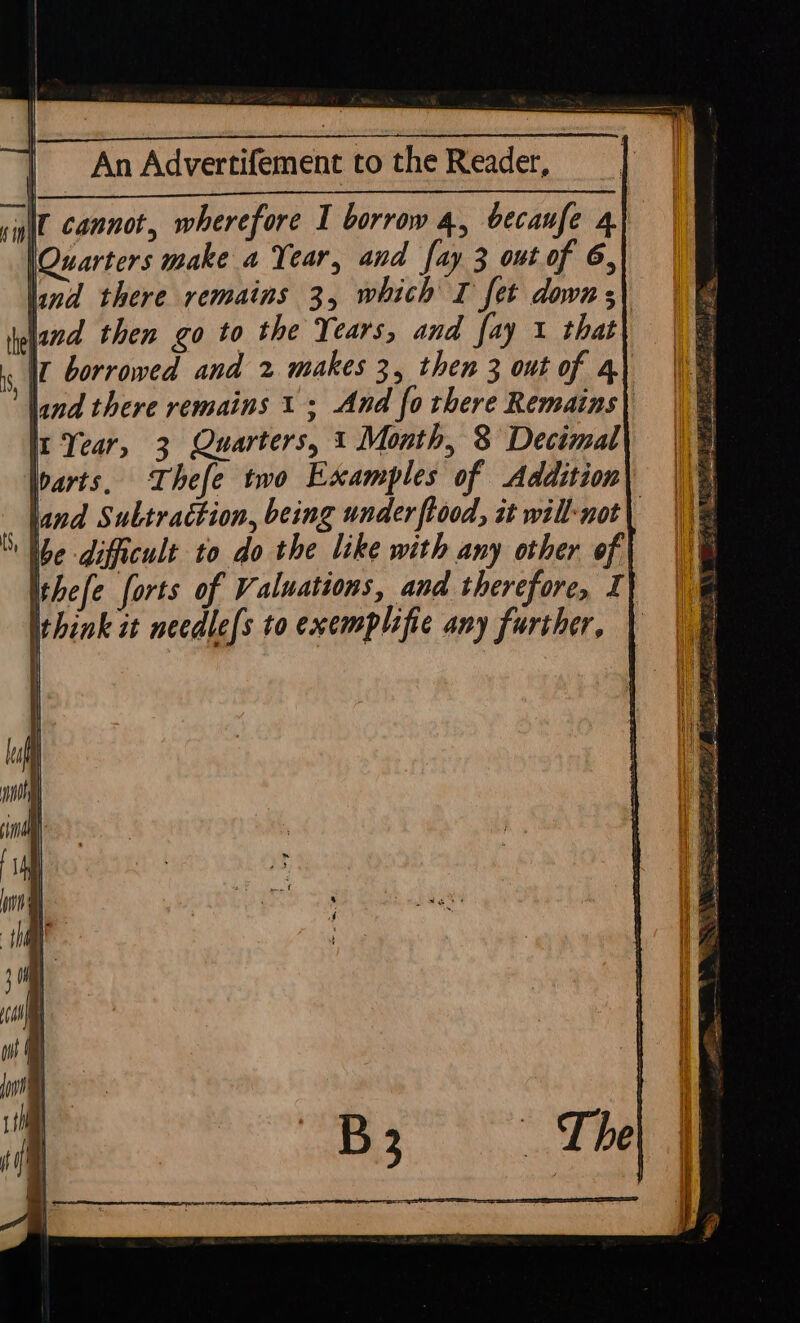 An Advertiſement to the Reader,
I cannot, wherefore I borrow 4, becauſe 4
Quarters make a Year, and ſay 3 out of 6,
and there remains 3, which I ſet down;
and then go to the Years, and ſay 1 that
I borrowed and 2 makes 3, then 3 out of 4
and there remains 1; And ſo there Remains
1 Year, 3 Quarters, 1 Month, 8 Decimal
parts. Theſe two Examples of Addition
and Subtraction, being underſtood, it will not
be difficult to do the like with any other of
theſe ſorts of Valuations, and therefore, I
think it needleſs to exemplifie any further.
B3 The